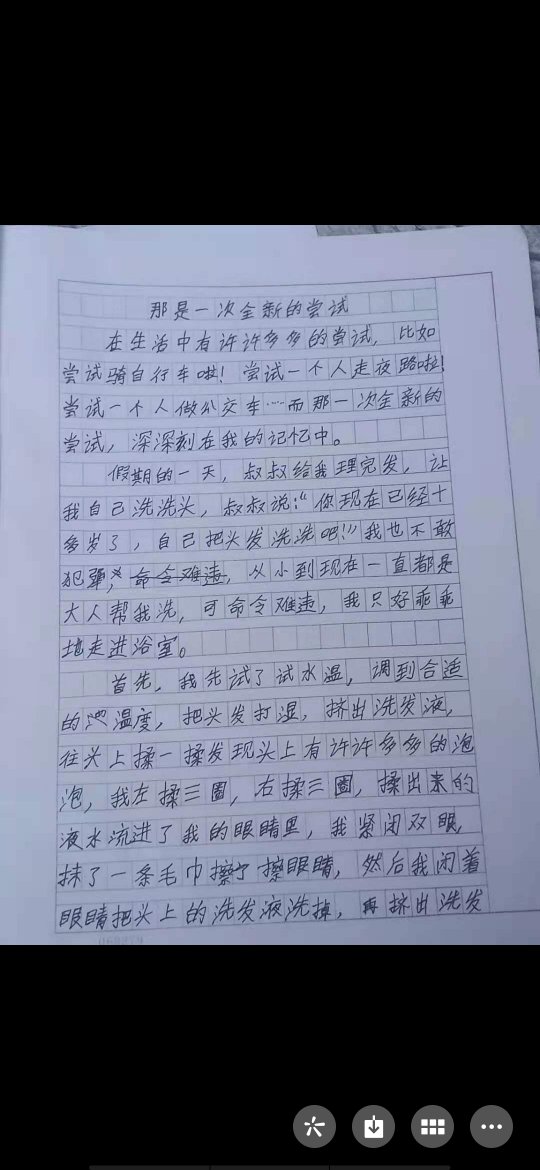 那是一次全新的尝试
在生活中有许许多多的尝试，比如
尝试骑自行车啦！尝试一个人走夜路啦！
尝试一个人做公交车…而那一次全新的
尝试，深深刻在我的记忆中。
假期的一天，叔叔给我理完发，让
我自己洗洗头，叔叔说：“你现在已经十
多岁了，自己把头发洗洗吧！”我也不敢
犯，命令难违，从小到现在一直都是
大人帮我洗，可命令难违，我只好乖乖
地走进浴室。
首先，我先试了试水温，调到合适
的温度，把头发打湿，挤出洗发液，
往头上揉一揉发现头上有许许多多的泡
泡，我左揉三圈，右揉三圈，揉出来的
液水流进了我的眼睛里，我紧闭双眼，
抹了一条毛巾擦擦眼睛，然后我闭着
眼睛把头上的洗发液洗掉，再挤出洗发